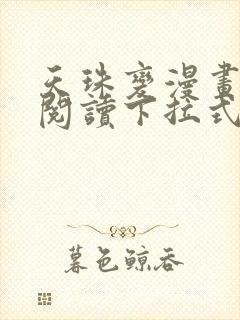 天珠變漫畫
閱讀下拉式
暮色鲸吞